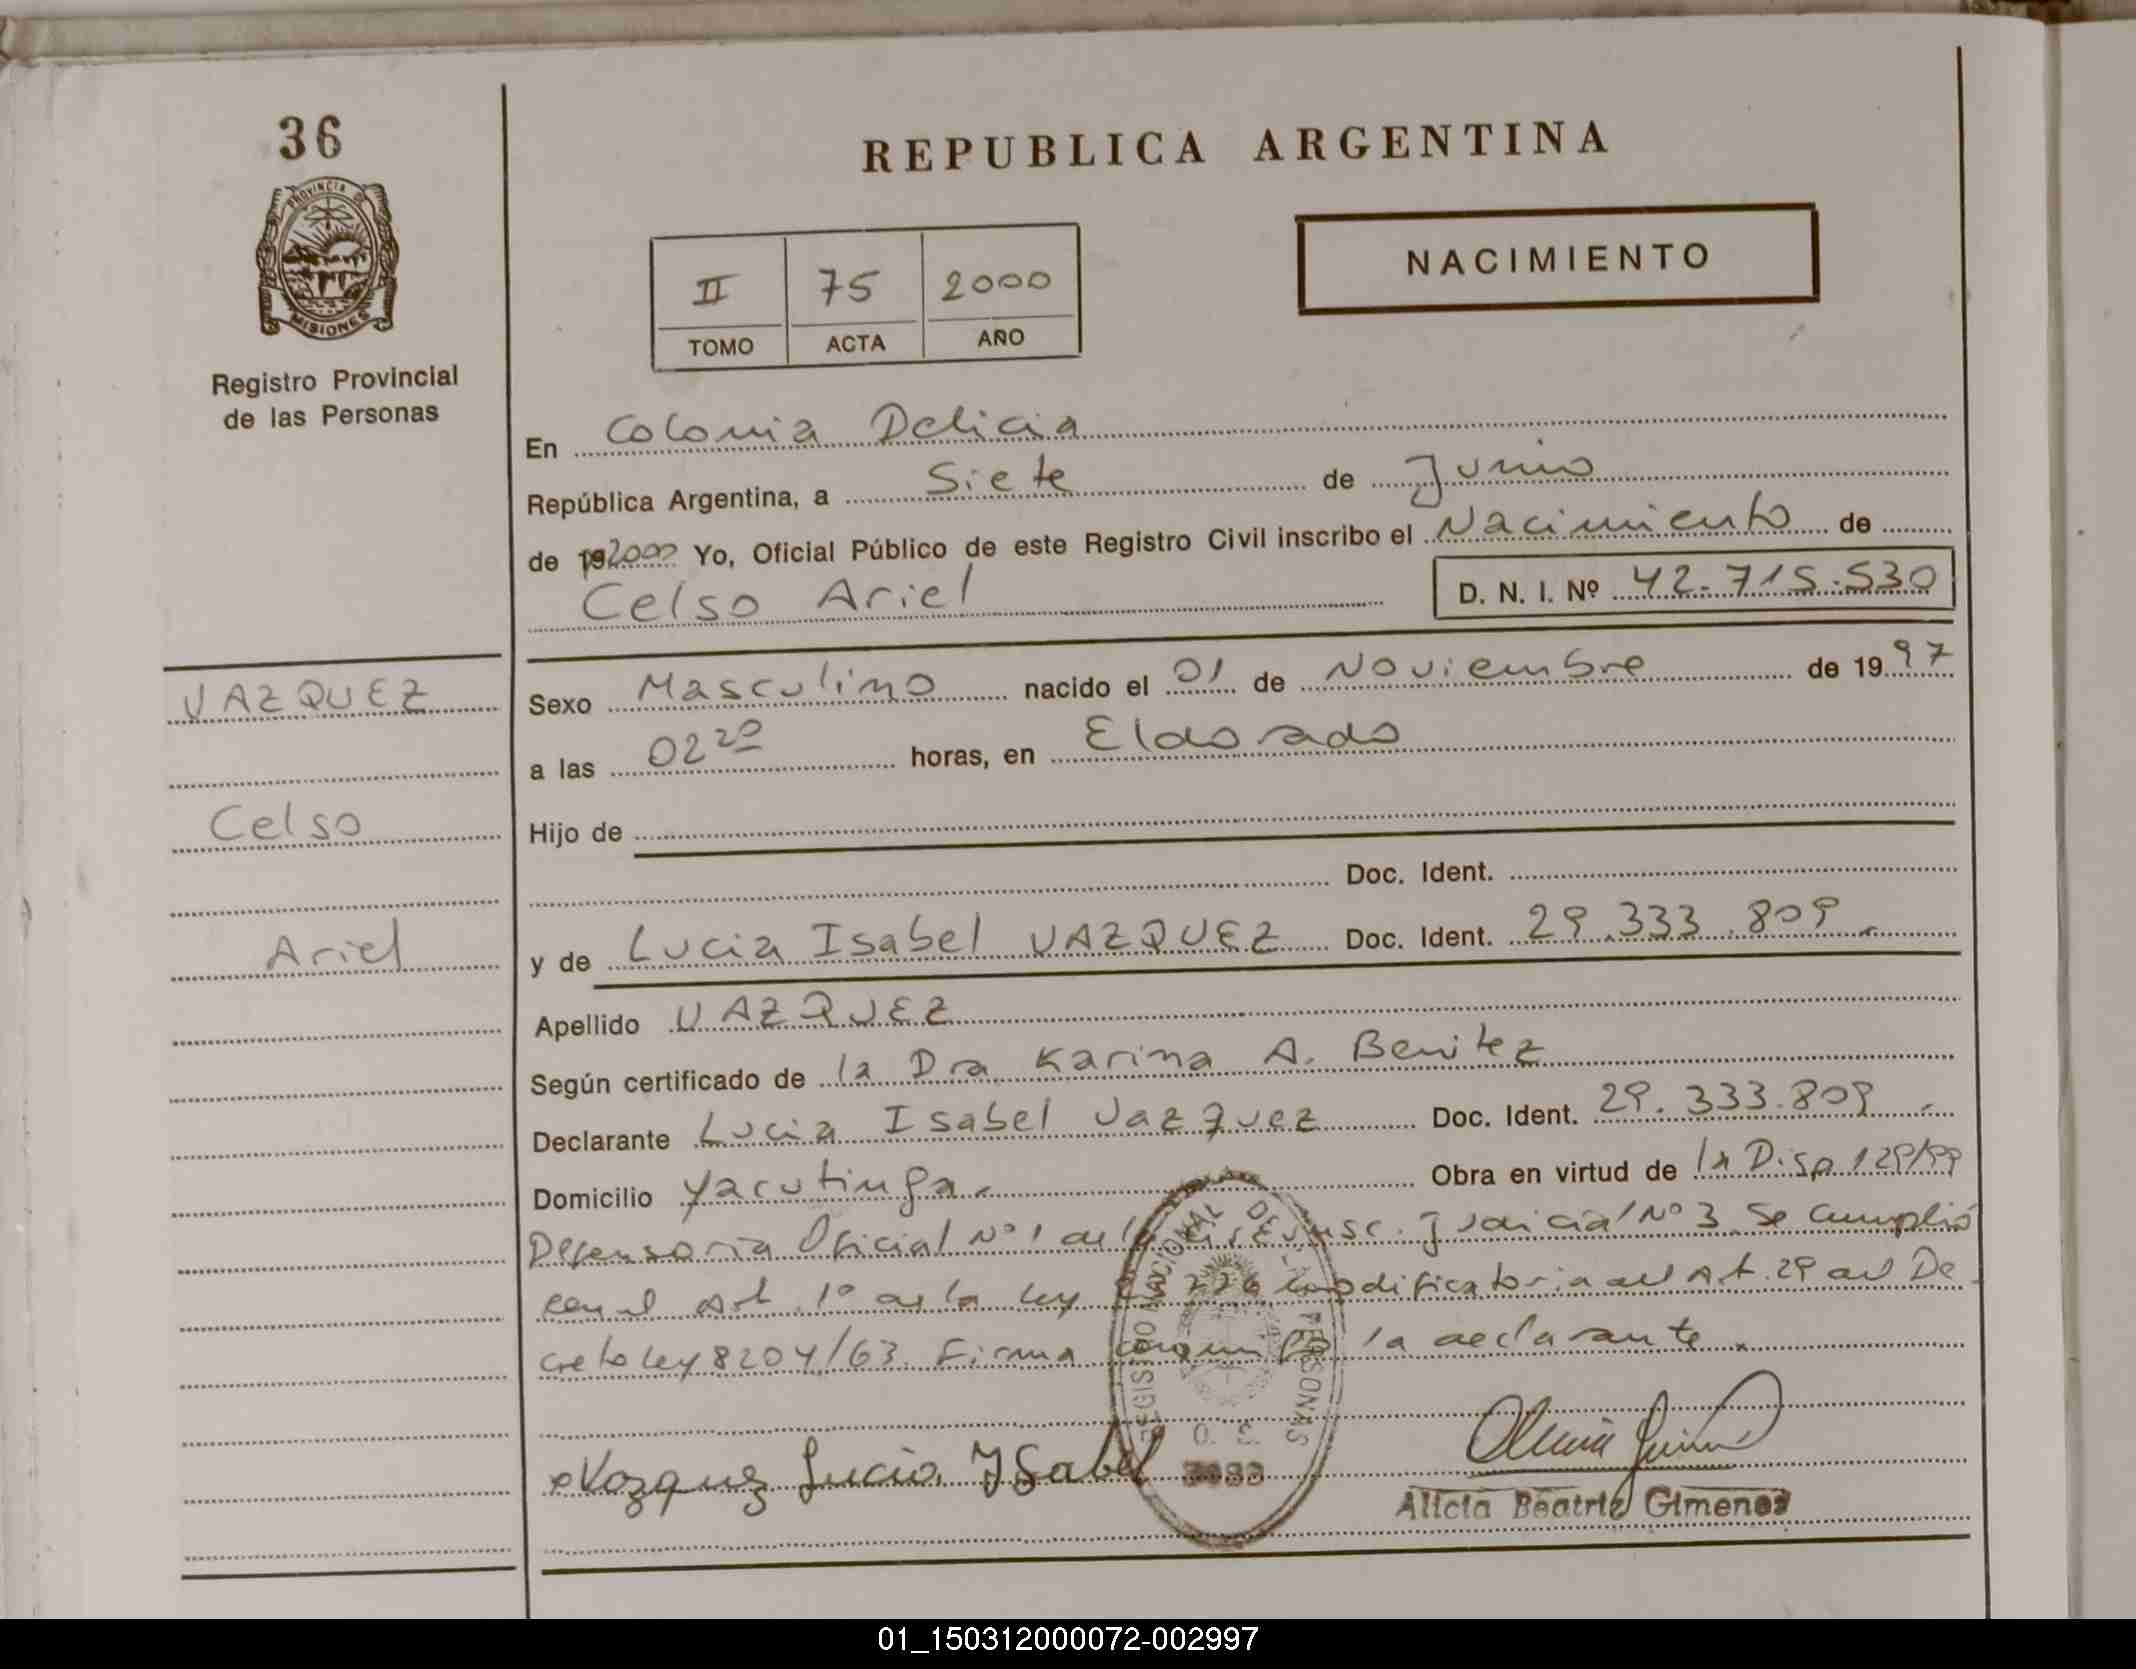 36
REPUBLICA ARGENTINA
PROVINCIA DE
MISIONES
Registro Provincial
de las Personas
II 75 2000
TOMO ACTA AÑO
NACIMIENTO
En Colonia Delicia
República Argentina, a Siete de Junio
de 192000 Yo, Oficial Público de este Registro Civil inscribo el Nacimiento de
Celso Ariel D. N. I. Nº 42.715.530
VAZQUEZ
Celso
Ariel
Sexo Masculino nacido el 01 de Noviembre de 1997
a las 02 20 horas, en Eldorado
Hijo de
Doc. Ident.
y de Lucia Isabel VAZQUEZ Doc. Ident. 29.333.809.
Apellido VAZQUEZ
Según certificado de la Dra Karina A. Benitez
Declarante Lucia Isabel Vazquez Doc. Ident. 29.333.809.
Domicilio Yacutinga. Obra en virtud de la Disp 129/99
Defensoria Oficial Nº 1 de la Circunsc. Judicial Nº 3. Se cumplió
con el Art. 1º de la ley modificatoria del Art. 29 del De-
creto ley 8204/63. Firma la declarante.
REGISTRO NACIONAL DE LAS PERSONAS
O. S.
Vazquez Lucia ISabel
Alicia Beatriz Gimenez
01_150312000072-002997